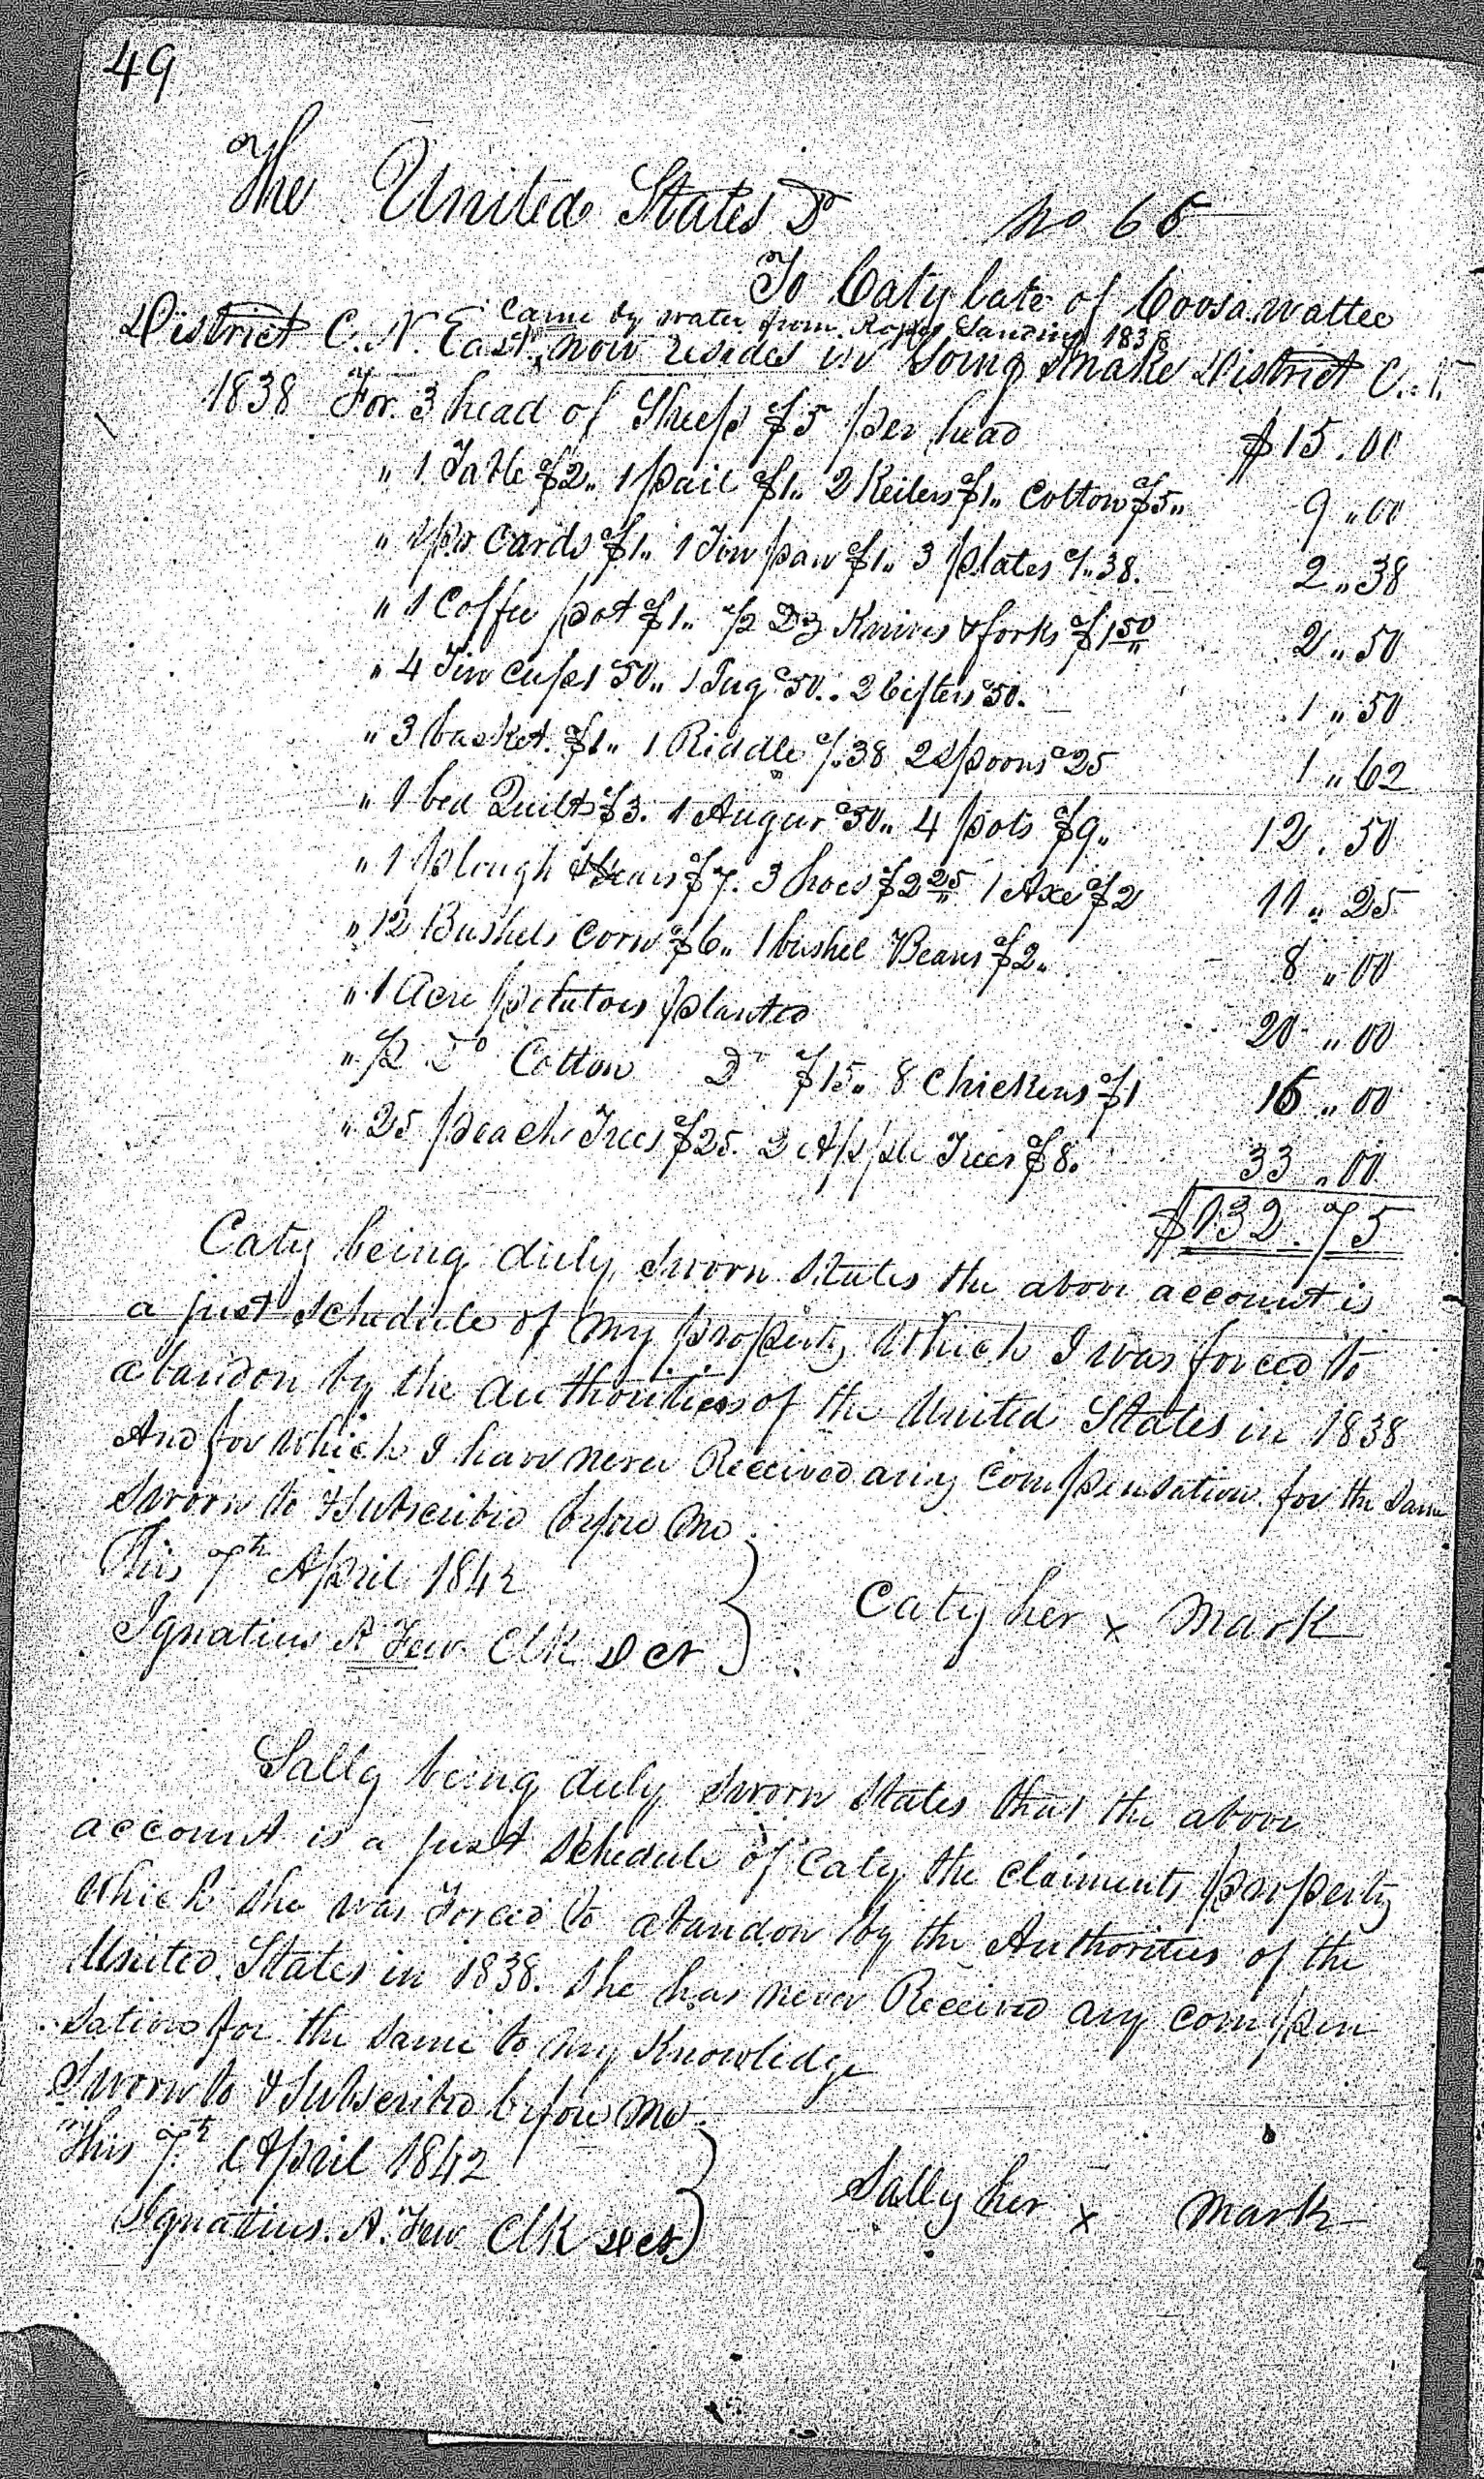 49
The United States Dr No 65
To Caty late of Coosawattee
came by water from Ross's Landing 1838
District C. N. East, now resides in Going Snake District C. N.
1838 For 3 head of Sheep $5 per head $15.00
" 1 Table $2 " 1 pail $1 " 2 Keilers $1 " Cotton $5 " 9 " 00
" 1 pr Cards $1 " 1 Tin pan $1 " 3 plates c/ " 38. 2 " 38
" 1 Coffee pot $1 " 1/2 Dz Knives & forks $1 50 2 " 50
" 4 Tin Cups 50 " 1 Jug c50 " 2 Cifters c50. 1 " 50
" 3 basket $1 " 1 Riddle c/38 2 Spoons c25 1 " 62
" 1 bed Quilt $3. 1 Augur c50 " 4 pots $9 " 12.50
" 1 plough & Gears $7. 3 hoes $2 25 1 Axe $2 11 " 25
" 12 Bushels Corn $6 " 1 bushel Beans $2 " 8 " 00
" 1 Acre potatoes planted 20 " 00
" 1/2 Do Cotton Do $15 " 8 Chickens $1 16 " 00
" 25 peach Trees $25. 2 Apple Trees $8. 33 " 00
$132.75
Caty being duly sworn states the above account is
a just schedule of my property which I was forced to
abandon by the authorities of the United States in 1838
And for which I have never Received any compensation for the same
Sworn to & Subscribed before me
This 7th April 1842
Ignatius A Few Clk Caty her x mark
Sally being duly sworn states that the above
account is a just schedule of Caty the claiments property
which she was Forced to abandon by the Authorities of the
United States in 1838. She has never Received any compen
sation for the same to my Knowledge
Sworn to & Subscribed before me
This 7th April 1842
Ignatius. A. Few Clk Sally her x mark